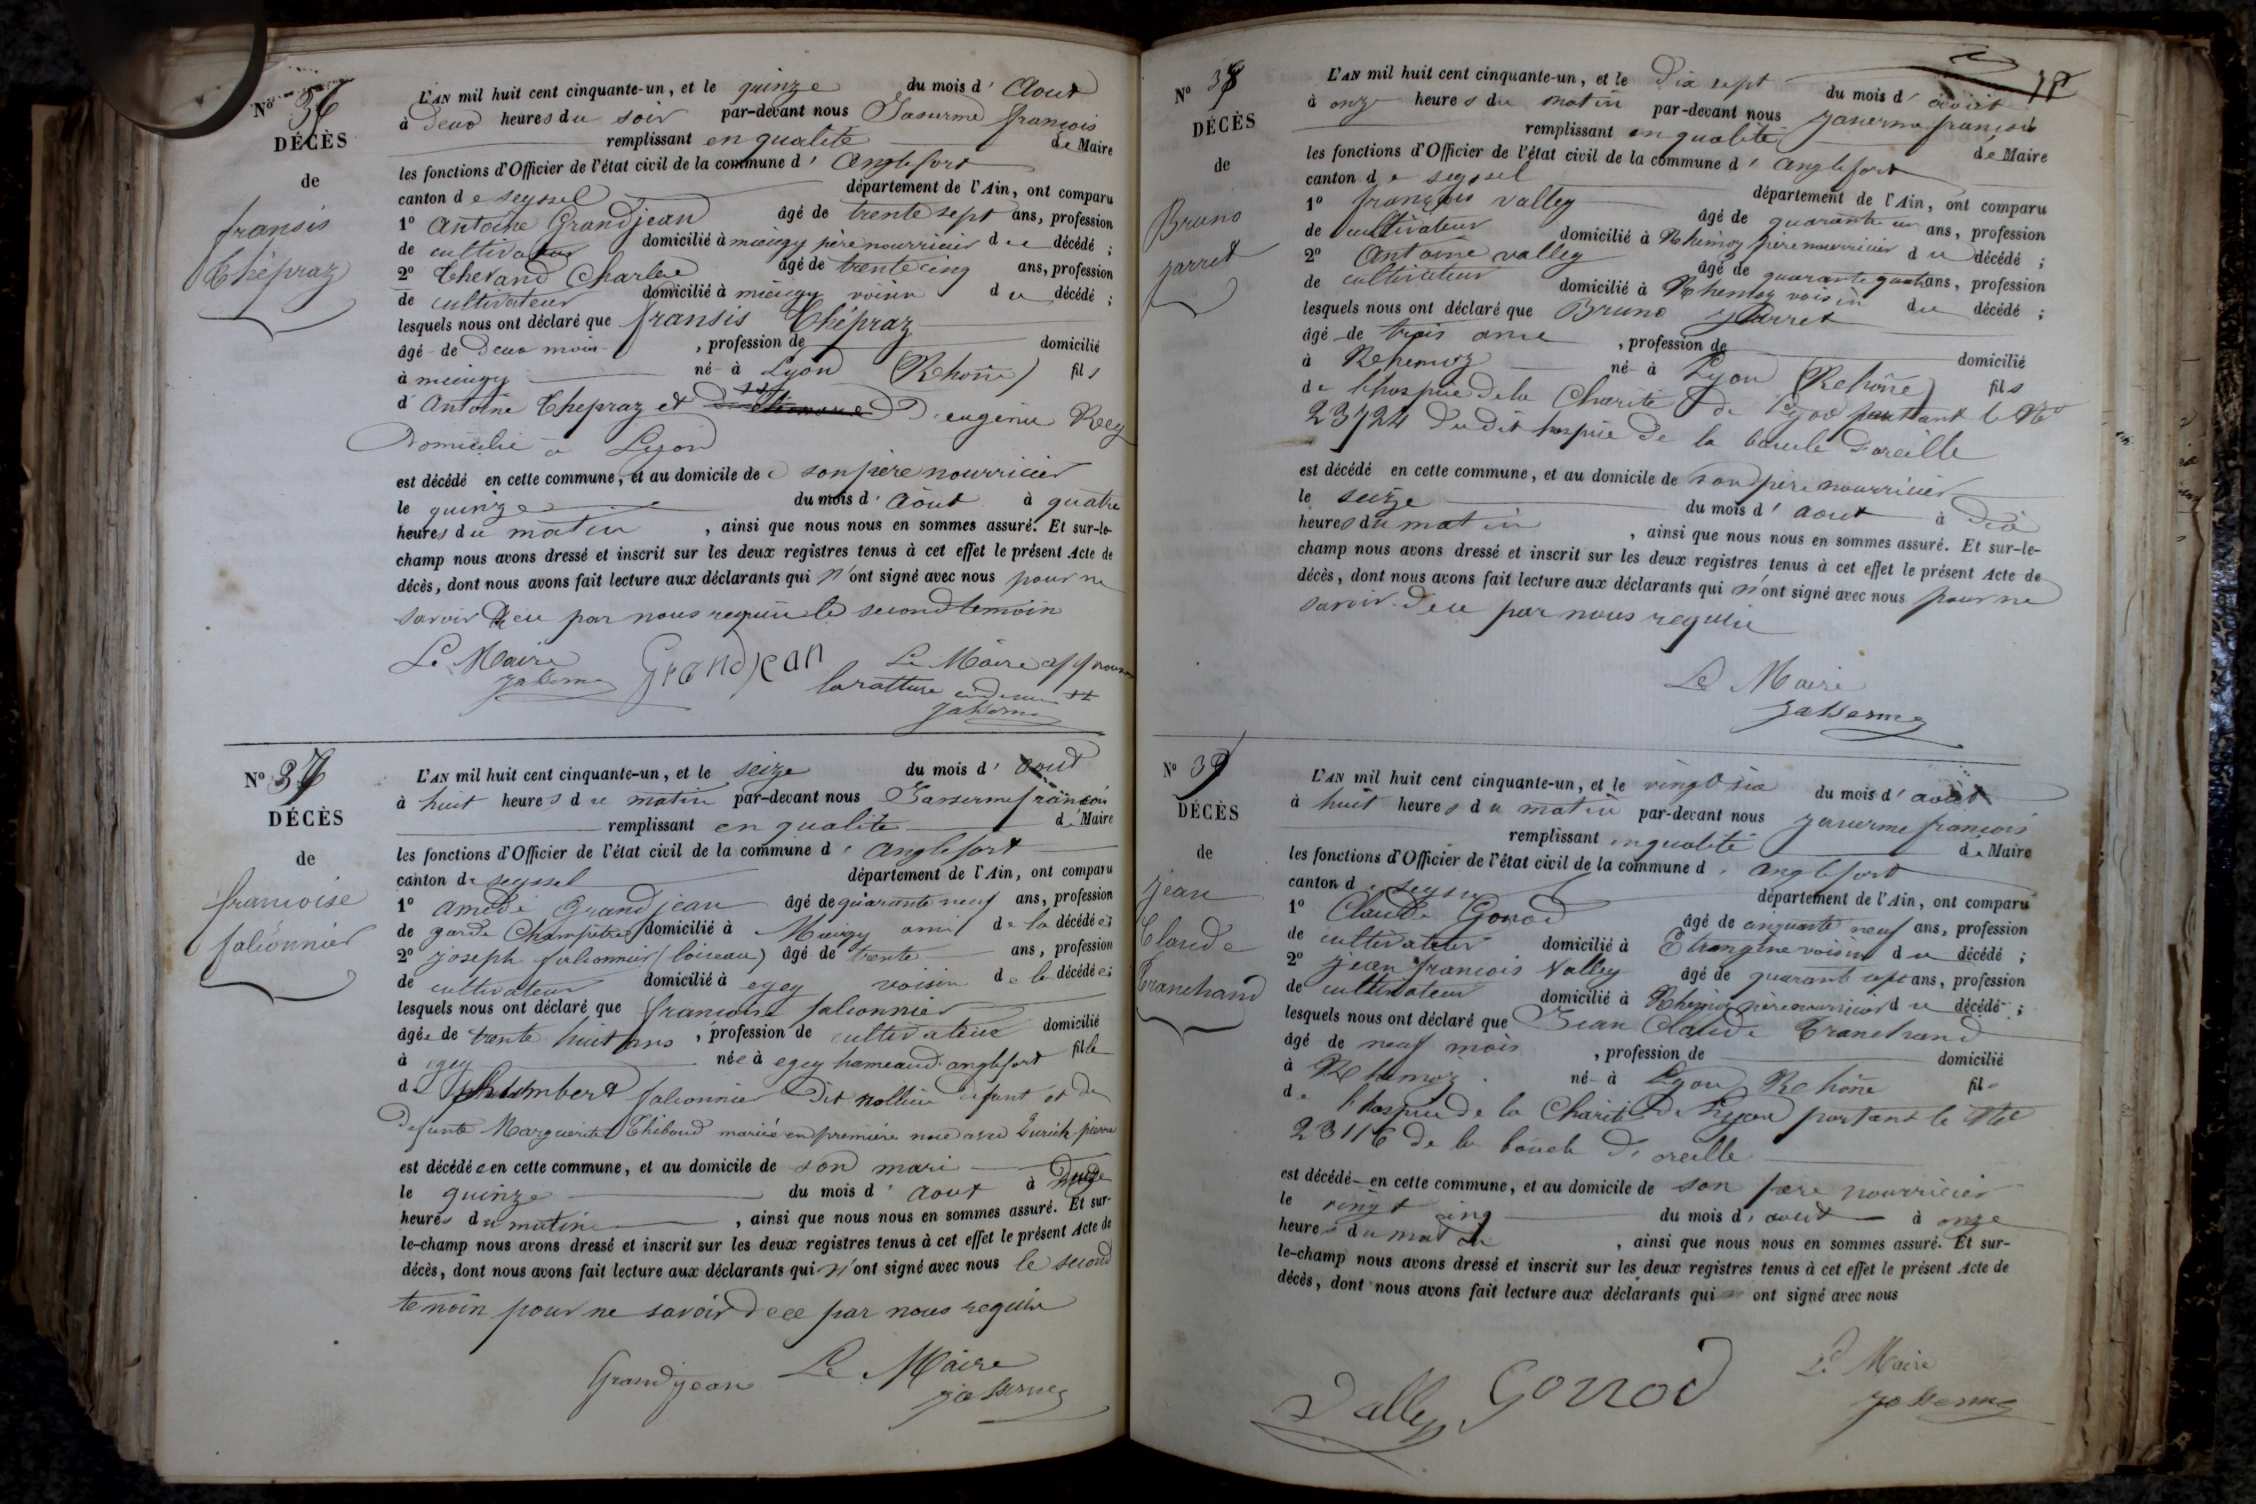 N° 36
DÉCÈS
de
fransis
Chépraz
L'AN mil huit cent cinquante-un, et le quinze du mois d' Aout
à deux heures du soir par-devant nous Jasserme françois
remplissant en qualité de Maire
les fonctions d'Officier de l'état civil de la commune d' Anglefort
canton de seyssel département de l'Ain, ont comparu
1° Antoine Grandjean âgé de trente sept ans, profession
de cultivateur domicilié à mieugy père nourricier du décédé ;
2° Charles âgé de trente cinq ans, profession
de cultivateur domicilié à mieugy voisin du décédé ;
lesquels nous ont déclaré que fransis Chépraz
âgé de deux mois , profession de domicilié
à mieugy né à Lyon (Rhone) fils
d' Antoine Chepraz et D'eugenie
Domicilié à Lyon
est décédé en cette commune, et au domicile de son père nourricier
le quinze du mois d' Août à quatre
heures du matin , ainsi que nous nous en sommes assuré. Et sur-le-
champ nous avons dressé et inscrit sur les deux registres tenus à cet effet le présent Acte de
décès, dont nous avons fait lecture aux déclarants qui n'ont signé avec nous pour ne
savoir de ce par nous requis le second temoin
Le Maire Grandjean Le Maire approuve
Jasserme la rature
Jasserme
N° 37
DÉCÈS
de
francoise
falconnier
L'AN mil huit cent cinquante-un, et le seize du mois d' aout
à huit heures du matin par-devant nous Jasserme françois
remplissant en qualité de Maire
les fonctions d'Officier de l'état civil de la commune d' anglefort
canton de seyssel département de l'Ain, ont comparu
1° amédé Grandjean âgé de quarante neuf ans, profession
de garde Champêtre domicilié à Mieugy ami de la décédée ;
2° joseph falconnier (loiseau) âgé de trente ans, profession
de cultivateur domicilié à egey voisin de la décédée ;
lesquels nous ont déclaré que francoise falconnier
âgée de trente huit ans , profession de cultivateur domicilié
à egey née à egey hameau d'anglefort fille
de humbert falconnier dit defunt et de
Defunte Marguerite Thiboud mariée en première noce avec pierre
est décédée en cette commune, et au domicile de son mari
le quinze du mois d' aout à
heures du matin , ainsi que nous nous en sommes assuré. Et sur-
le-champ nous avons dressé et inscrit sur les deux registres tenus à cet effet le présent Acte de
décès, dont nous avons fait lecture aux déclarants qui n'ont signé avec nous le second
temoin pour ne savoir de ce par nous requis
Grandjean Le Maire
Jasserme
N° 38
DÉCÈS
de
Bruno
jarret
L'AN mil huit cent cinquante-un, et le Dix sept du mois d' aout
à onze heures du matin par-devant nous Jasserme françois
remplissant en qualité de Maire
les fonctions d'Officier de l'état civil de la commune d' Anglefort
canton de seyssel département de l'Ain, ont comparu
1° françois valley âgé de quarante un ans, profession
de cultivateur domicilié à Rhemoz père nourricier du décédé ;
2° Antoine valley âgé de quarante quatre ans, profession
de cultivateur domicilié à Rhemoz voisin du décédé ;
lesquels nous ont déclaré que Bruno jarret
âgé de trois ans , profession de domicilié
à Rehemoz né à Lyon (Rehône) fils
de l'hospice de la Charité de Lyon portant le N°
23724 du dit hospice de la boucle d'oreille
est décédé en cette commune, et au domicile de son père nourricier
le seize du mois d' aout à dix
heures du matin , ainsi que nous nous en sommes assuré. Et sur-le-
champ nous avons dressé et inscrit sur les deux registres tenus à cet effet le présent Acte de
décès, dont nous avons fait lecture aux déclarants qui n'ont signé avec nous pour ne
savoir de ce par nous requis
Le Maire
Jasserme
N° 39
DÉCÈS
de
jean
Claude
Tranchand
L'AN mil huit cent cinquante-un, et le vingt six du mois d' août
à huit heures du matin par-devant nous Jasserme françois
remplissant en qualité de Maire
les fonctions d'Officier de l'état civil de la commune d' anglefort
canton de seyssel département de l'Ain, ont comparu
1° Claude Gonod âgé de cinquante neuf ans, profession
de cultivateur domicilié à Etrangine voisin du décédé ;
2° jean francois Valley âgé de quarante sept ans, profession
de cultivateur domicilié à Rhemoz père nourricier du décédé ;
lesquels nous ont déclaré que Jean Claude Tranchand
âgé de neuf mois , profession de domicilié
à Rhemoz né à Lyon Rehône fils
de l'hospice de la Charité de Lyon portant le N°
23116 de la boucle d'oreille
est décédé en cette commune, et au domicile de son père nourricier
le vingt cinq du mois d' août à onze
heures du matin , ainsi que nous nous en sommes assuré. Et sur-
le-champ nous avons dressé et inscrit sur les deux registres tenus à cet effet le présent Acte de
décès, dont nous avons fait lecture aux déclarants qui ont signé avec nous
Valley Gonod Le Maire
Jasserme